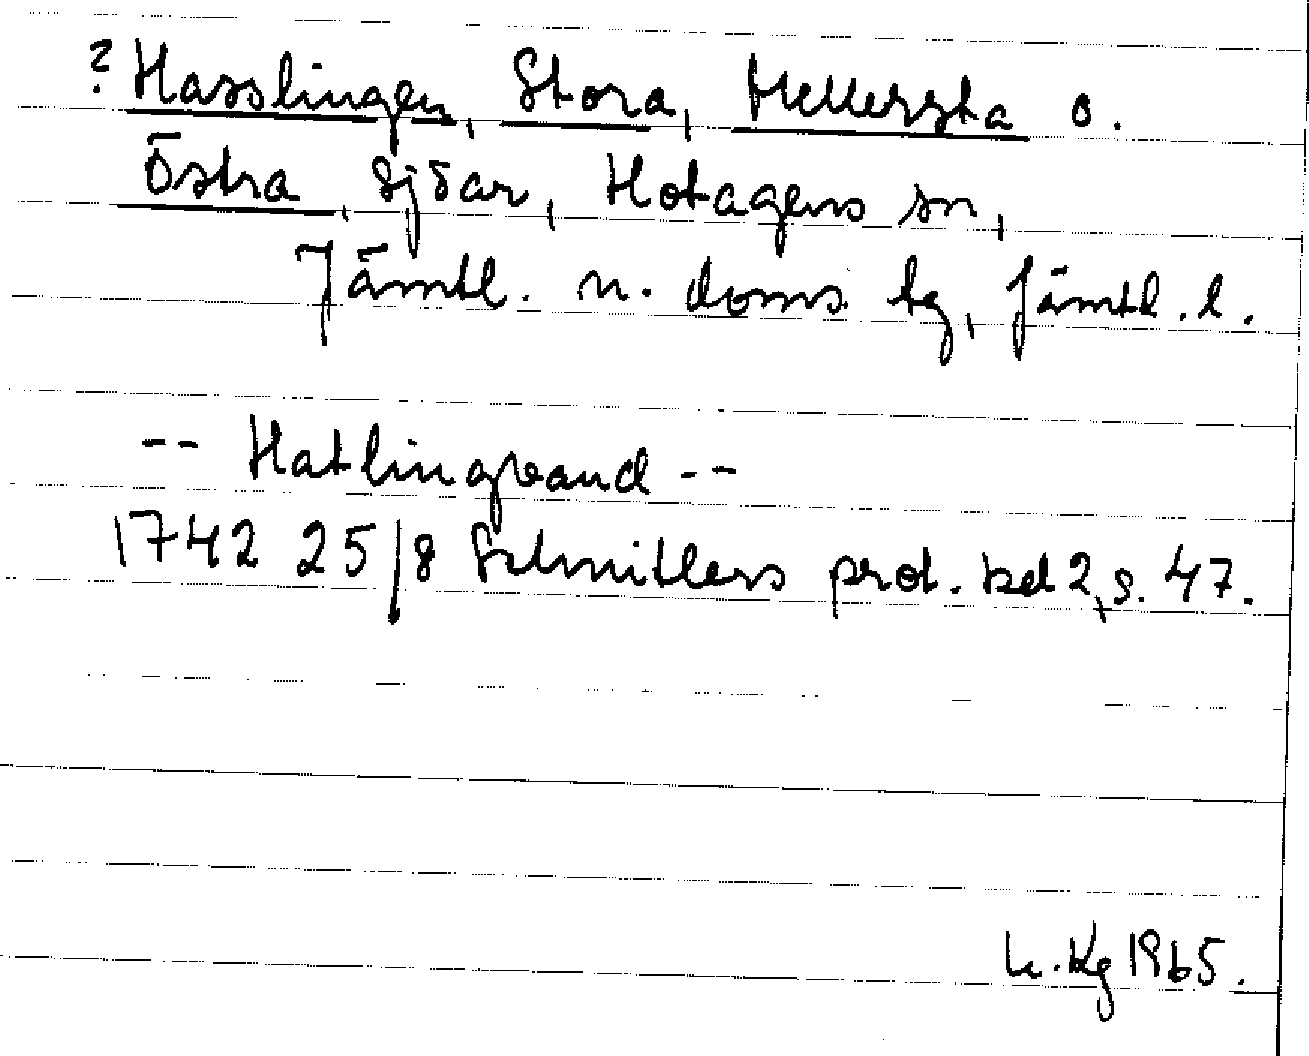 ? Hasslingen, Stora, Mellersta o.
Östra, sjöar, Hotagens sn,
Jämtl. n. doms. tg, Jämtl. l.
-- Hatlingvand --
1742 25/8 Schnitlers prot. bd 2, s. 47.
Kg 1965.